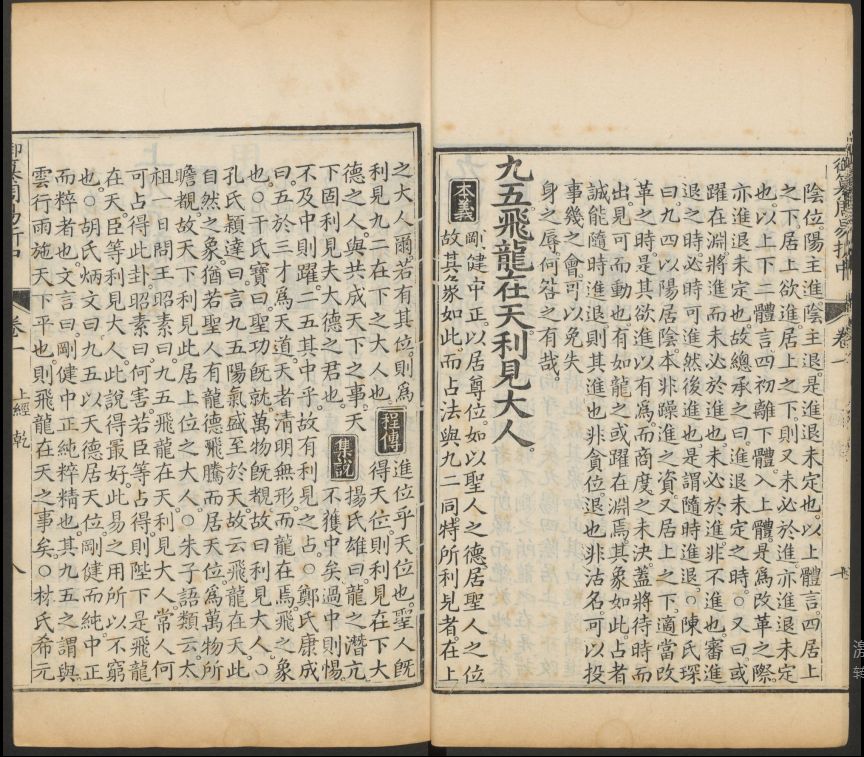 御纂周易折中
卷一
陰位陽主進陰主退是進退未定也以上體言四居上
之下居上欲進居上之下則又未必於進亦進退未定
也以上下二體言四初離下體入上體是爲改革之際
亦進退未定也故總承之曰進退未定之時○又曰或
躍在淵將進而未必於進也未必於進非不進也審進
退之時必時可進然後進也是謂隨時進退○陳氏琛
曰九四以陽居陰本非躁進之資又居上之下適當改
革之時是其欲進以有爲而商度之未決蓋將待時而
出見可而動也有如龍之或躍在淵焉其象如此占者
誠能隨時進退則其進也非貪位退也非沽名可以投
事幾之會可以免失
身之辱何咎之有哉
九五飛龍在天利見大人
本義 剛健中正以居尊位如以聖人之德居聖人之位
故其象如此而占法與九二同特所利見者在上
之大人爾若有其位則爲
利見九二在下之大人也
程傳 進位乎天位也聖人旣
得天位則利見在下大
德之人與共成天下之事天
下固利見夫大德之君也
集說 揚氏雄曰龍之潛亢
不獲中矣過中則惕
不及中則躍二五其中乎故有利見之占○鄭氏康成
曰五於三才爲天道天者清明無形而龍在焉飛之象
也○干氏寶曰聖功旣就萬物旣覩故曰利見大人○
孔氏穎達曰言九五陽氣盛至於天故云飛龍在天此
自然之象猶若聖人有龍德飛騰而居天位爲萬物所
瞻覩故天下利見此居上位之大人○朱子語類云太
祖一日問王昭素曰九五飛龍在天利見大人常人何
可占得此卦昭素曰何害若臣等占得則陛下是飛龍
在天臣等利見大人此說得最好此易之用所以不窮
也○胡氏炳文曰九五以天德居天位剛健而純中正
而粹者也文言曰剛健中正純粹精也其九五之謂與
雲行雨施天下平也則飛龍在天之事矣○林氏希元
御纂周易折中
卷一 上經 乾
八